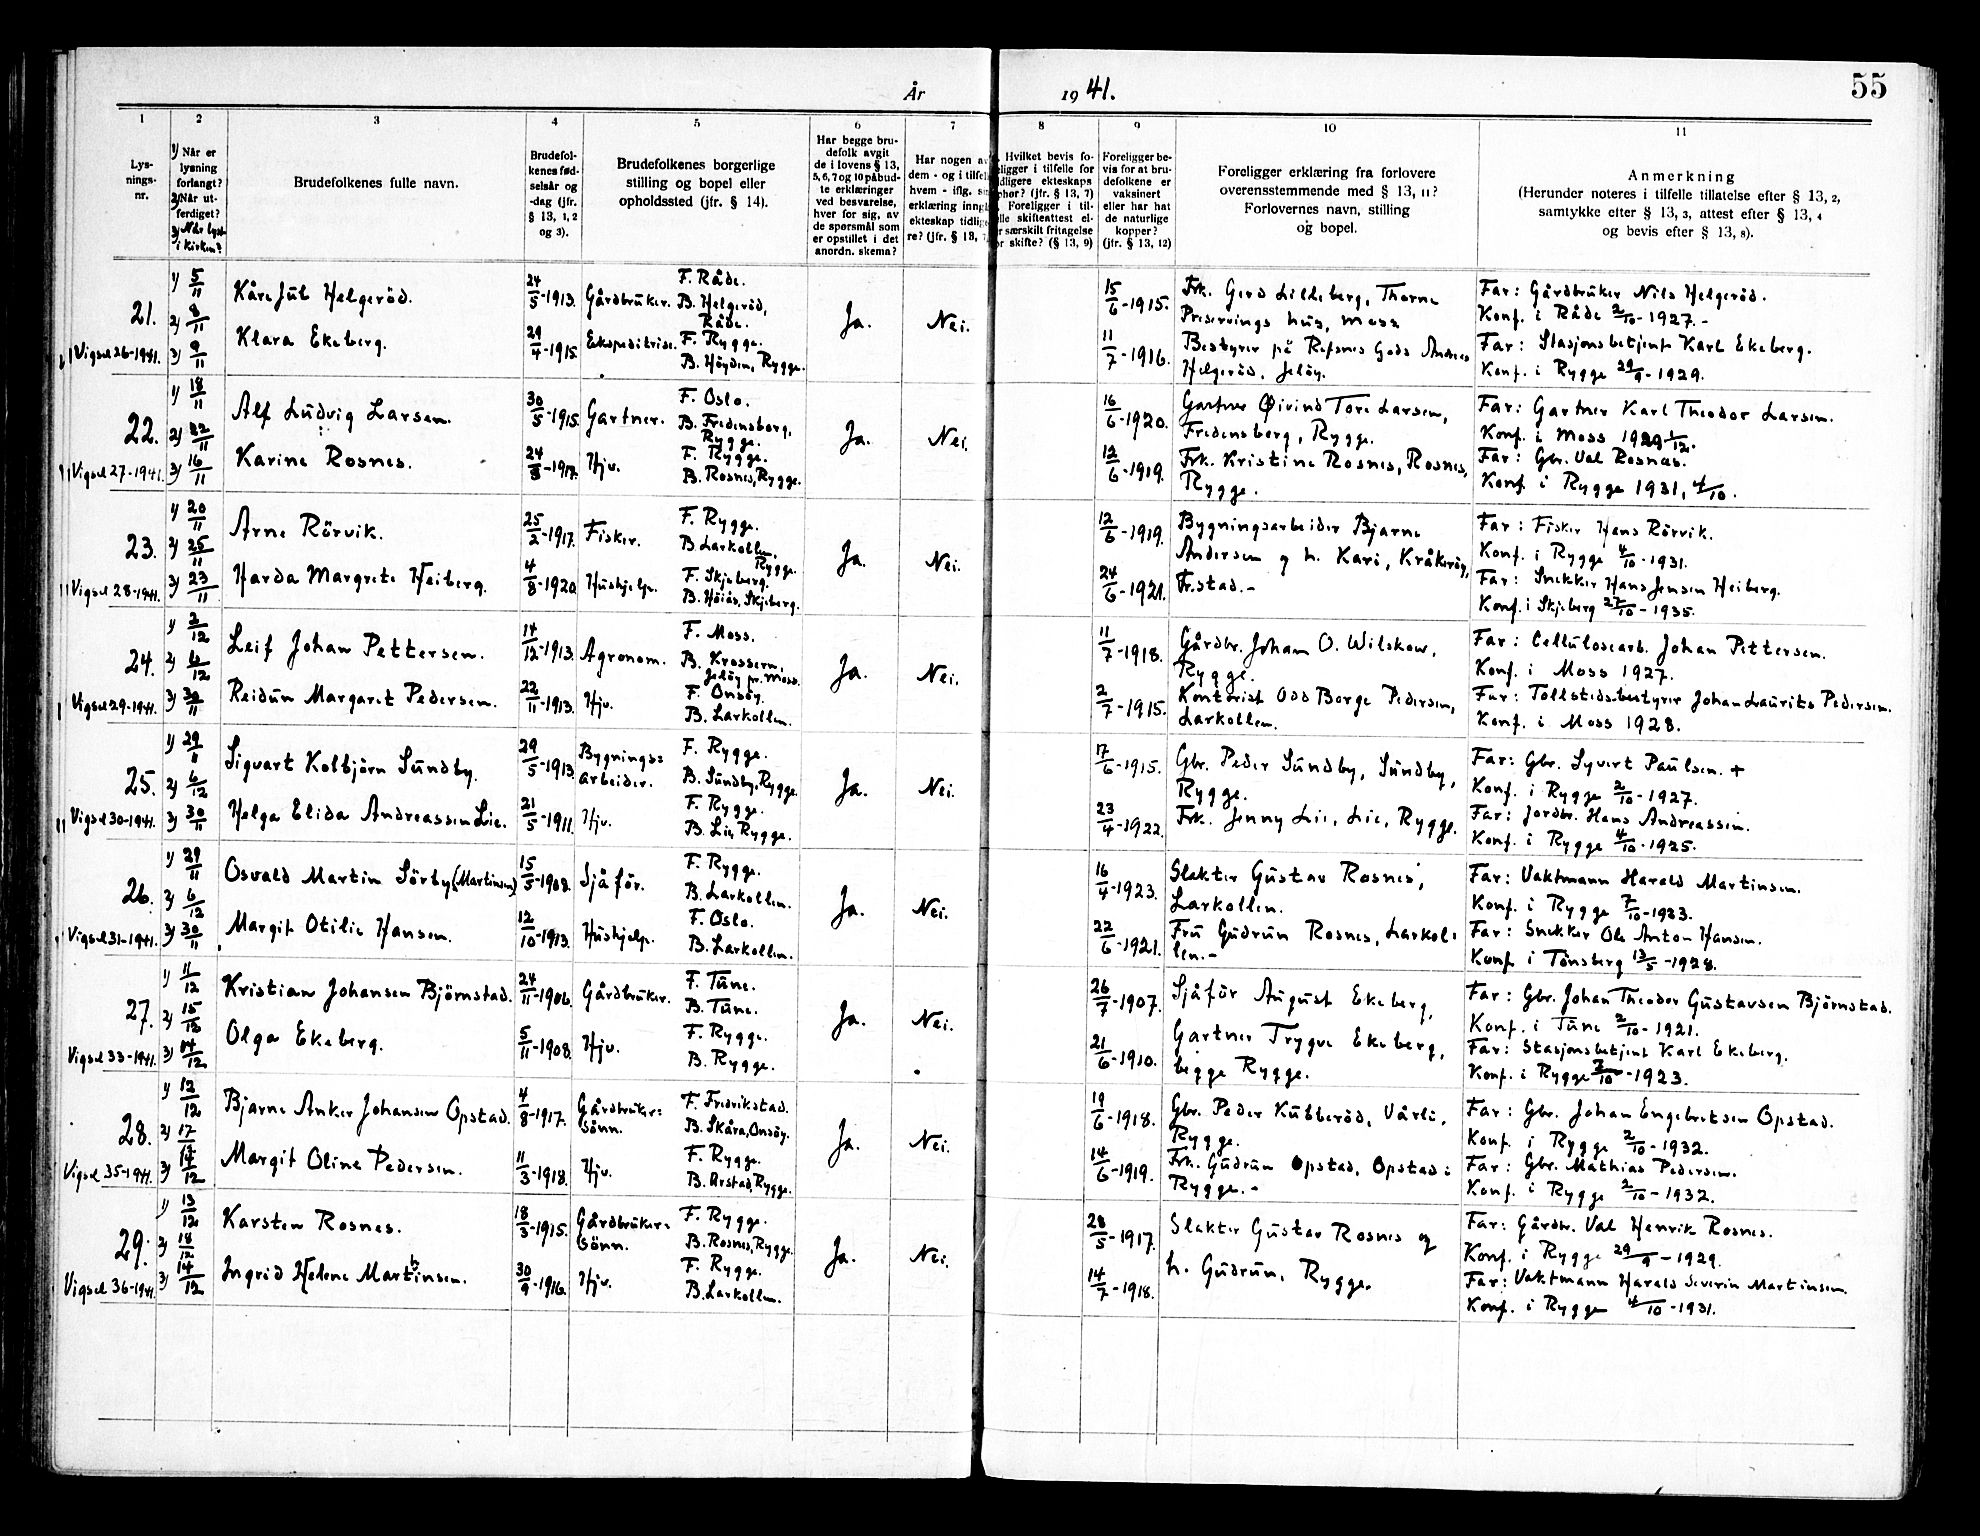 År 1941. 55
1 2 3 4 5 6 7 8 9 10 11
Lys-
nings-
nr.
1) Når er
lysning
forlangt?
2) Når ut-
ferdiget?
3) Når lyst
i kirken?
Brudefolkenes fulle navn.
Brudefol-
kenes fød-
selsår og
-dag (jfr.
§ 13, 1, 2
og 3).
Brudefolkenes borgerlige
stilling og bopel eller
opholdssted (jfr. § 14).
Har begge bru-
defolk avgit
de i lovens § 13,
5, 6, 7 og 10 påbud-
te erklæringer
ved besvarelse,
hver for sig, av
de spørsmål som
er opstillet i det
anordn. skema?
Har nogen a
dem - og i tilfel
hvem - iflg. s
erklæring inng
ekteskap tidlig
re? (jfr. § 13,
Hvilket bevis fo-
eligger i tilfelle for
idligere ekteskaps
phør? (jfr. § 13, 7)
Foreligger i til-
lle skifteattest el-
r særskilt fritagelse
or skifte? (§ 13, 9)
Foreligger be-
vis for at bru-
defolkene er
vaksinert
eller har hat
de naturlige
kopper?
(jfr. § 13, 12)
Foreligger erklæring fra forlovere
overensstemmende med § 13, 11?
Forlovernes navn, stilling
og bopel.
Anmerkning
(Herunder noteres i tilfelle tillatelse efter § 13, 2,
samtykke efter § 13, 3, attest efter § 13, 4
og bevis efter § 13, 8).
21.
Vigsel 26-1941.
1) 5/11
2) 8/11
3) 9/11
Kåre Jül Helgeröd.
Klara Ekeberg.
24/5-1913.
29/4-1915.
Gårdbrüker.
Ekspeditrise.
F. Råde.
B. Helgeröd,
Råde.
F. Rygge.
B. Höyden, Rygge.
Ja.
Nei.
15/6-1915.
11/7-1916.
Frk. Gerd Lilleberg, Thorne
Preservings hüs, Moss
Bestyrer på Refsnes Gods Andreas
Helgeröd, Jelöy.
Far: Gårdbrüker Nils Helgeröd.
Konf. i Råde 2/10-1927.-
Far: Stasjonsbetjent Karl Ekeberg.
Konf. i Rygge 29/9-1929.
22.
Vigsel 27-1941.
1) 18/11
2) 22/11
3) 16/11
Alf Lüdvig Larsen.
Karine Rosnes.
30/5-1915.
24/8-1917.
Gartner.
Hjv.
F. Oslo.
B. Fredensborg,
Rygge.
F. Rygge.
B. Rosnes, Rygge.
Ja.
Nei.
16/6-1920.
12/6-1919.
Gartner Øivind Tore Larsen,
Fredensberg, Rygge.
Frk. Kristine Rosnes, Rosnes,
Rygge.
Far: Gartner Karl Theodor Larsen.
Konf. i Moss 1929 1/12.
Far: Gbr. Val Rosnes.
Konf. i Rygge 1931, 4/10.
23.
Vigsel 28-1941.
1) 20/11
2) 25/11
3) 23/11
Arne Rörvik.
Harda Margrete Heiberg.
25/2-1917.
4/8-1920.
Fisker.
Hüshjelp.
F. Rygge.
B. Larkollen,
Rygge.
F. Skjeberg.
B. Höiås, Skjeberg.
Ja.
Nei.
12/6-1919.
24/6-1921.
Bygningsarbeider Bjarne
Andersen og h. Kari, Kråkeröy,
Fr.stad.-
Far: Fisker Hans Rörvik.
Konf. i Rygge 4/10-1931.
Far: Snekker Hans Jensen Heiberg.
Konf. i Skjeberg 27/10-1935.
24.
Vigsel 29-1941.
1) 2/12
2) 6/12
3) 30/11
Leif Johan Pettersen.
Reidün Margaret Pedersen.
14/12-1913.
22/11-1913.
Agronom.
Hjv.
F. Moss.
B. Krossern,
Jelöy pr. Moss.
F. Onsöy.
B. Larkollen.
Ja.
Nei.
11/7-1918.
2/7-1915.
Gårdbr. Johan O. Wilskow,
Rygge.
Kontorist Odd Borge Pedersen,
Larkollen.
Far: Cellülosearb. Johan Pettersen.
Konf. i Moss 1927.
Far: Tollstedsbestyrer Johan Laürits Pedersen.
Konf. i Moss 1928.
25.
Vigsel 30-1941.
1) 29/11
2) 6/12
3) 30/11
Sigvart Kolbjörn Sündby.
Helga Elida Andreassen Lie.
29/5-1913.
21/5-1911.
Bygnings=
arbeider.
Hjv.
F. Rygge.
B. Sündby, Rygge.
F. Rygge.
B. Lie, Rygge.
Ja.
Nei.
17/6-1915.
23/4-1922.
Gbr. Peder Sündby, Sündby,
Rygge.
Frk. Jenny Lie, Lie, Rygge.
Far: Gbr. Syvert Paülsen. +
Konf. i Rygge 2/10-1927.
Far: Jordbr. Hans Andreassen.
Konf. i Rygge 4/10-1925.
26.
Vigsel 31-1941.
1) 29/11
2) 6/12
3) 30/11
Osvald Martin Sörby (Martinsen)
Margit Otilie Hansen.
15/5-1908.
12/10-1913.
Sjåför.
Hüshjelp.
F. Rygge.
B. Larkollen.
F. Oslo.
B. Larkollen.
Ja.
Nei.
16/4-1923.
22/6-1921.
Slakter Güstav Rosnes,
Larkollen.
Frü Güdrün Rosnes, Larkol=
len.-
Far: Vaktmann Harald Martinsen.
Konf. i Rygge 7/10-1923.
Far: Snekker Ole Anton Hansen.
Konf. i Tönsberg 13/5-1928.
27.
Vigsel 33-1941.
1) 11/12
2) 15/12
3) 14/12
Kristian Johansen Björnstad.
Olga Ekeberg.
24/11-1906.
5/11-1908.
Gårdbrüker.
Hjv.
F. Tüne.
B. Tüne.
F. Rygge.
B. Rygge.
Ja.
Nei.
26/7-1907.
21/6-1910.
Sjåför Aügüst Ekeberg,
Gartner Trygve Ekeberg,
begge Rygge.
Far: Gbr. Johan Theodor Güstavsen Björnstad.
Konf. i Tüne 2/10-1921.
Far: Stasjonsbetjent Karl Ekeberg.
Konf. i Rygge 7/10-1923.
28.
Vigsel 35-1941.
1) 12/12
2) 17/12
3) 14/12
Bjarne Anker Johansen Opstad.
Margit Oline Pedersen.
4/8-1917.
11/3-1918.
Gårdbrüker=
sönn.
Hjv.
F. Fredrikstad.
B. Skåra, Onsöy.
F. Rygge.
B. Årstad, Rygge.
Ja.
Nei.
19/6-1918.
14/6-1919.
Gbr. Peder Kübberöd, Vårli,
Rygge.
Frk. Güdrün Opstad, Opstad i
Rygge.-
Far: Gbr. Johan Engebretsen Opstad.
Konf. i Rygge 2/10-1932.
Far: Gbr. Mathias Pedersen.
Konf. i Rygge 2/10-1932.
29.
Vigsel 36-1941.
1) 13/12
2) 18/12
3) 14/12
Karsten Rosnes.
Ingrid Helene Martinsen.
18/3-1915.
30/9-1916.
Gårdbrüker=
sönn.
Hjv.
F. Rygge.
B. Rosnes, Rygge.
F. Rygge.
B. Larkollen.
Ja.
Nei.
28/5-1917.
14/7-1918.
Slakter Güstav Rosnes og
h. Güdrün, Rygge.
Far: Gårdbr. Val Henrik Rosnes.
Konf. i Rygge 29/9-1929.
Far: Vaktmann Harald Severin Martinsen.
Konf. i Rygge 4/10-1931.